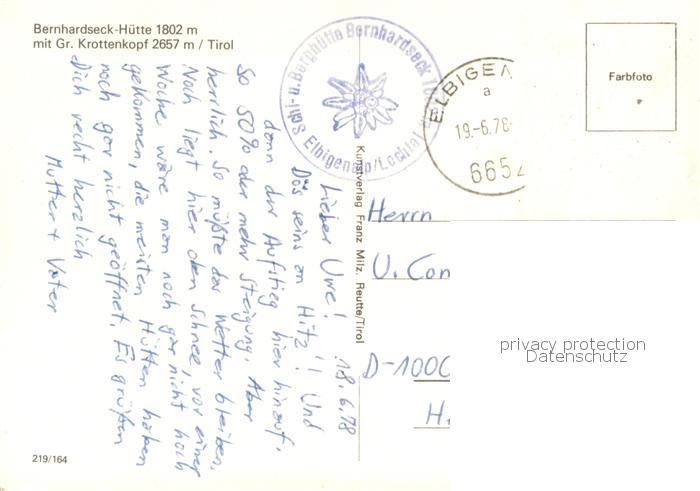 Bernhardseck-Hütte 1802 m
mit Gr. Krottenkopf 2657 m / Tirol
Lieber Uwe! 18.6.78
Dös seins an Hitz'! Und
dann der Aufstieg hier hinauf.
So 50% oder mehr Steigung. Aber
herrlich. So müßte das Wetter bleiben.
Noch liegt hier oben Schnee, vor einer
Woche wäre man noch gar nicht hoch
gekommen, die meisten Hütten haben
noch gar nicht geöffnet. Es grüßen
Dich recht herzlich
Mutter + Vater
219/164
Kunstverlag Franz Milz, Reutte/Tirol
Schi- u. Berghütte Bernhardseck
Elbigenalp/Lechtal
ELBIGEN
a
19.-6.78
6652
Farbfoto
Herrn
U. Con
D-1000
H.
privacy protection
Datenschutz